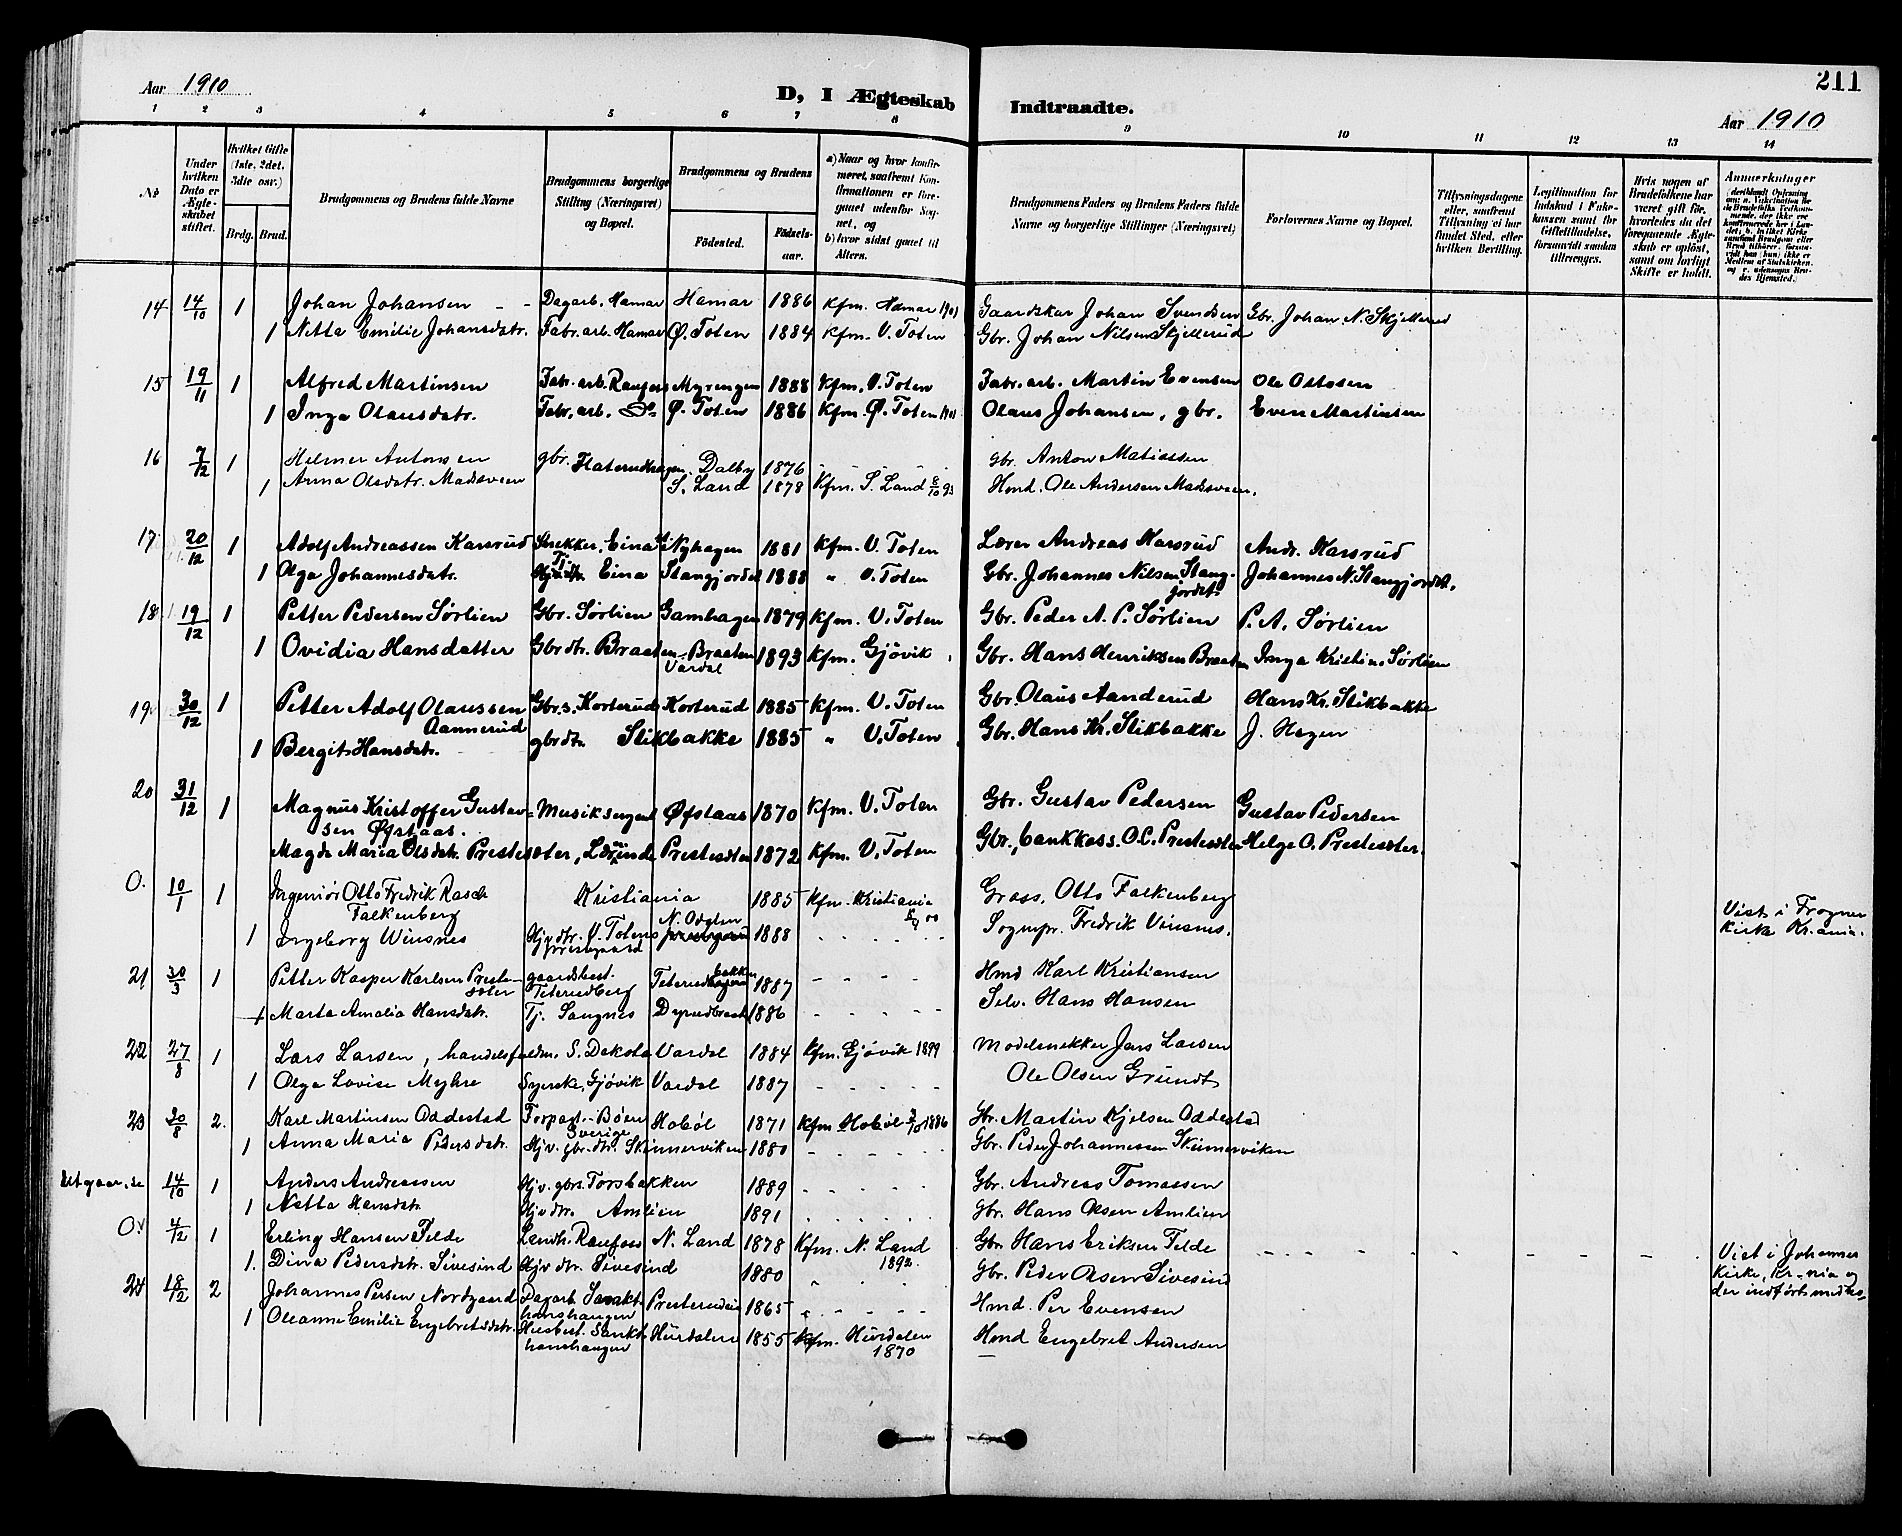 211
Aar 1910
D, I Ægteskab Indtraadte.
Aar 1910
1 2 3 4 5 6 7 8 9 10 11 12 13 14
No
Under hvilken Dato er Ægteskabet stiftet.
Hvilket Gifte (1ste, 2det, 3die osv.)
Brdg. Brud.
Brudgommens og Brudens fulde Navne
Brudgommens borgerlige Stilling (Næringsvei) og Bopæl.
Brudgommens og Brudens
Födested. Födselsaar.
a) Naar og hvor konfirmeret, saafremt Konfirmationen er foregaaet udenfor Sognet, og
b) hvor sidst gaaet til Alters.
Brudgommens Faders og Brudens Faders fulde Navne og borgerlige Stillinger (Næringsvei)
Forlovernes Navne og Bopæl.
Tillysningsdagene eller, saafremt Tillysning ei har fundet Sted, efter hvilken Bevilling.
Legitimation for Indskud i Enkekassen samt for Giftetilladelse, forsaavidt saadan tiltrænges.
Hvis nogen af Brudefolkene har været gift för, hvorledes da det foregaaende Ægteskab er oplöst, samt om lovligt Skifte er holdt.
Anmærkninger
14 14/10 1 Johan Johansen - - Dagarb. Hamar Hamar 1886 Kfm. Hamar 1901 Gaardskar Johan Svendsen Gbr. Johan N. Skjellerud
1 Netta Emilie Johansdatr. Fabr. arb. Hamar Ø. Toten 1884 Kfm. V. Toten Gbr. Johan Nilsen Skjellerud
15 19/11 1 Alfred Martinsen Fabr. arb. Raufoss Myrengen 1888 Kfm. V. Toten Fabr. arb. Martin Evensen Ole Ottosen
1 Inga Olausdatr. Fabr. arb. Do Ø. Toten 1886 Kfm. Ø. Toten 1901 Olaus Johansen, gbr. Even Martinsen
16 7/12 1 Helmer Antonsen gbr. Flaterudhagen Dalby 1876 - - - gbr. Anton Matiassen
1 Anna Olsdatr. Madsveen S. Land 1878 Kfm. S. Land 8/10 93 Hmd. Ole Andersen Madsveen.
17 20/12 1 Adolf Andreassen Karsrud Snekker, Eina Nyhagen 1881 Kfm. V. Toten Lærer Andreas Karsrud Andr. Karsrud
1 Olga Johannesdatr. Tj. Eina Stangjordet 1888 " V. Toten Gbr. Johannes Nilsen Stangjordet Johannes N. Stangjordet.
18 19/12 1 Petter Pedersen Sørlien Gbr. Sørlien Gamhagen 1879 Kfm. V. Toten Gbr. Peder A. P. Sørlien P. A. Sørlien
1 Ovidia Hansdatter Gbrdtr. Braaten Braaten Vardal 1893 Kfm. Gjøvik Gbr. Hans Henriksen Braaten Inga Kristin. Sörlien
19 30/12 1 Petter Adolf Olaussen Aannerud Gbr.s. Korterud Korterud 1885 Kfm. V. Toten Gbr. Olaus Aanderud Hans Kr. Stikbakke
1 Bergit Hansdatr. gbrdtr. Stikbakke 1885 " V. Toten Gbr. Hans Kr. Stikbakke J. Hagen
20 31/12 1 Magnus Kristoffer Gustavsen Øfstaas. Musiksergent Øfstaas 1870 Kfm. V. Toten Gbr. Gustav Pedersen Gustav Pedersen
Magda Maria Olsdatr. Prestesæter, Lærinde Prestesæter 1872 Kfm. V. Toten Gbr., bankkass. O. C. Prestesæter Helge O. Prestesæter.
O. 10/1 1 Ingeniör Otto Fredrik Rasch Falkenberg Kristiania 1885 Kfm. Kristiania 00 Gross. Otto Falkenberg Viet i Frogner Kirke Kr.ania.
1 Ingeborg Winsnes Hjv. dtr. V. Totens prestegaard N. Odalen 1888 - - - Sognepr. Fredrik Vinsnes.
21 30/3 1 Petter Kasper Karlsen Prestesæter gaardsbest. Teterudberg Teterudbakken 1887 - - - Hmd Karl Kristiansen
1 Marta Amalia Hansdatr. Tj. Sangnes Dyrudbraaten 1886 - - - Selv. Hans Hansen
22 27/8 1 Lars Larsen, handelsfuldm. S. Deksta Vardal 1884 Kfm. Gjøvik 1899 Modelsnekker Jens Larsen
1 Olga Lovise Myhre Syerske, Gjøvik Vardal 1887 - - - Ole Olsen Grundt
23 20/8 2. Karl Martinsen Oddestad Forpagt. Böen Sverige Hobøl 1871 Kfm Hobøl 1886 Gbr. Martin Kjelsen Oddestad
1 Anna Maria Pedersdatr. Hjv. gbr. dtr. Skinnerviken 1880 - - - Gbr. Peder Johannessen Skinnerviken
14/10 1 Anders Andreassen Hjv. gbrs. Torsbakken 1889 - - - Gbr. Andreas Tomassen
1 Netta Hansdatr. Hjv dtr. Amlien 1891 - - - Gbr. Hans Olsen Amlien
O. 4/2 1 Erling Hansen Telde Landh. Raufoss N. Land 1878 Kfm. N. Land 1892 Gbr. Hans Eriksen Telde - - - Viet i Johannes Kirke, Kr-nia og der indført medes.
1. Dina Pedersdatr. Sivesind Hjv dtr. Sivesind 1880 " - - Gbr. Peder Olsen Sivesind
24 18/2 2 Johannes Persen Nordgaard Dagarb Sankthanshaugen Presterudeie 1865 " - - Hmd. Per Evensen
1 Oleanne Emilie Engebretsdatr. Husbest. Sankthanshaugen Hurdalen 1855 Kfm. Hurdalen 1870 Hmd Engebret Andersen